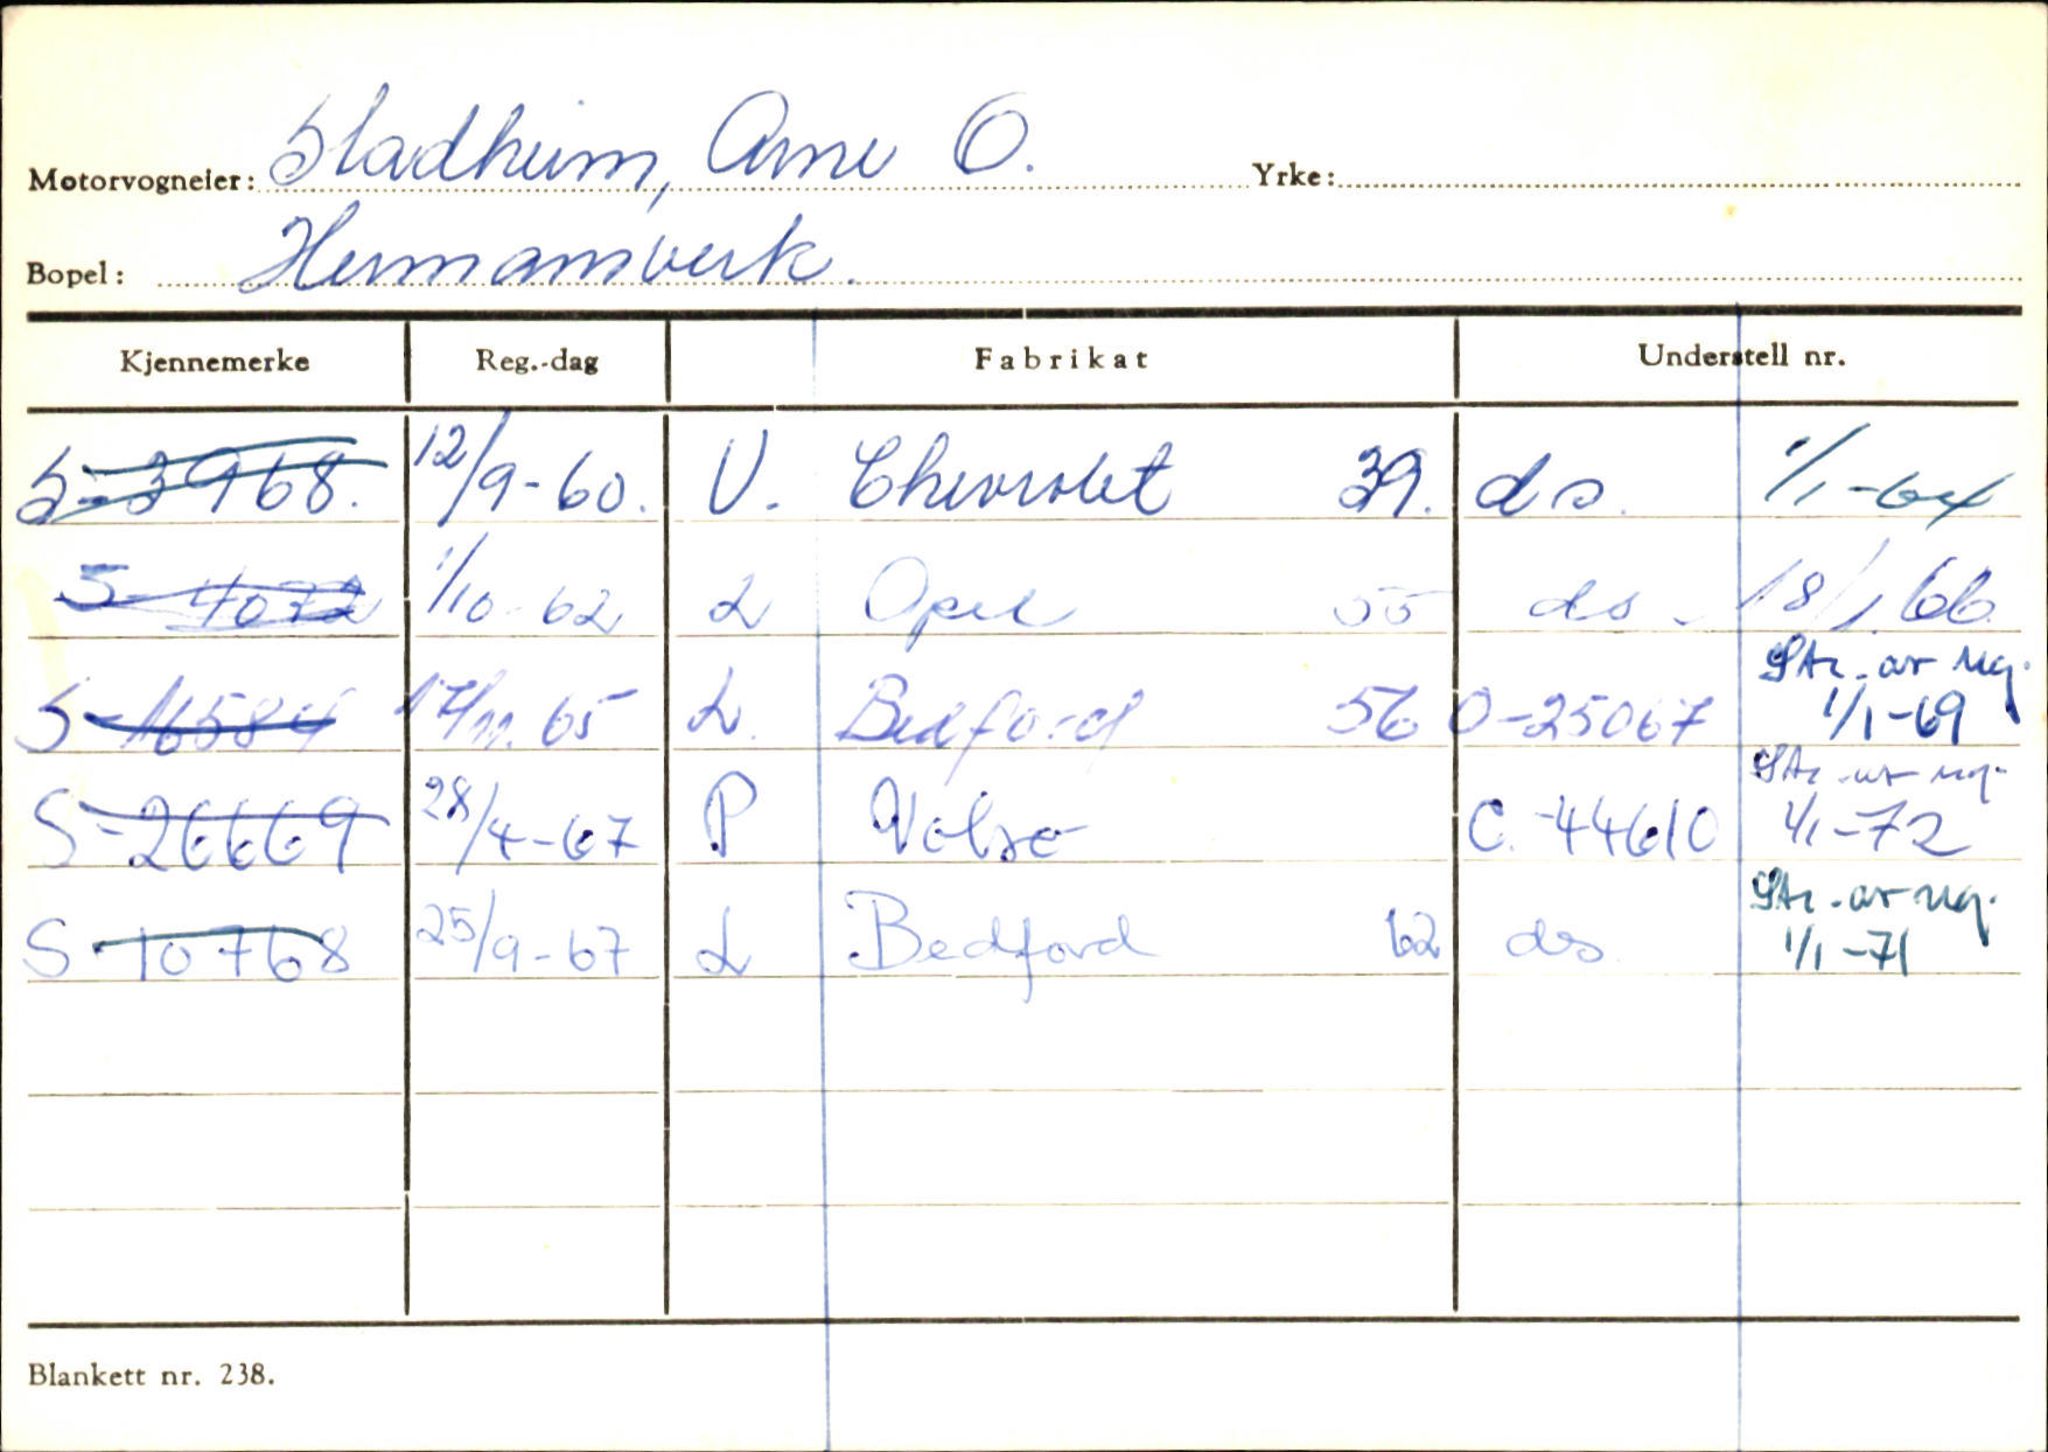 Motorvogneier: Stadheim, Arne O. Yrke:
Bopel: Hermansverk.
Kjennemerke Reg.-dag Fabrikat Understell nr.
S-3968. 12/9-60. V. Chevrolet 39. ds. 1/1-64
S-4072 1/10-62 L Opel 55 ds- 18/1 66
Str. av reg.
S-16584 17/11.65 L. Bedford 56 O-25067 1/1-69
Str. av reg.
S-26669 28/4-67 P Volvo C.-44610 1/1-72
Str. av reg.
S-10768 25/9-67 L Bedford 62 ds 1/1-71
Blankett nr. 238.